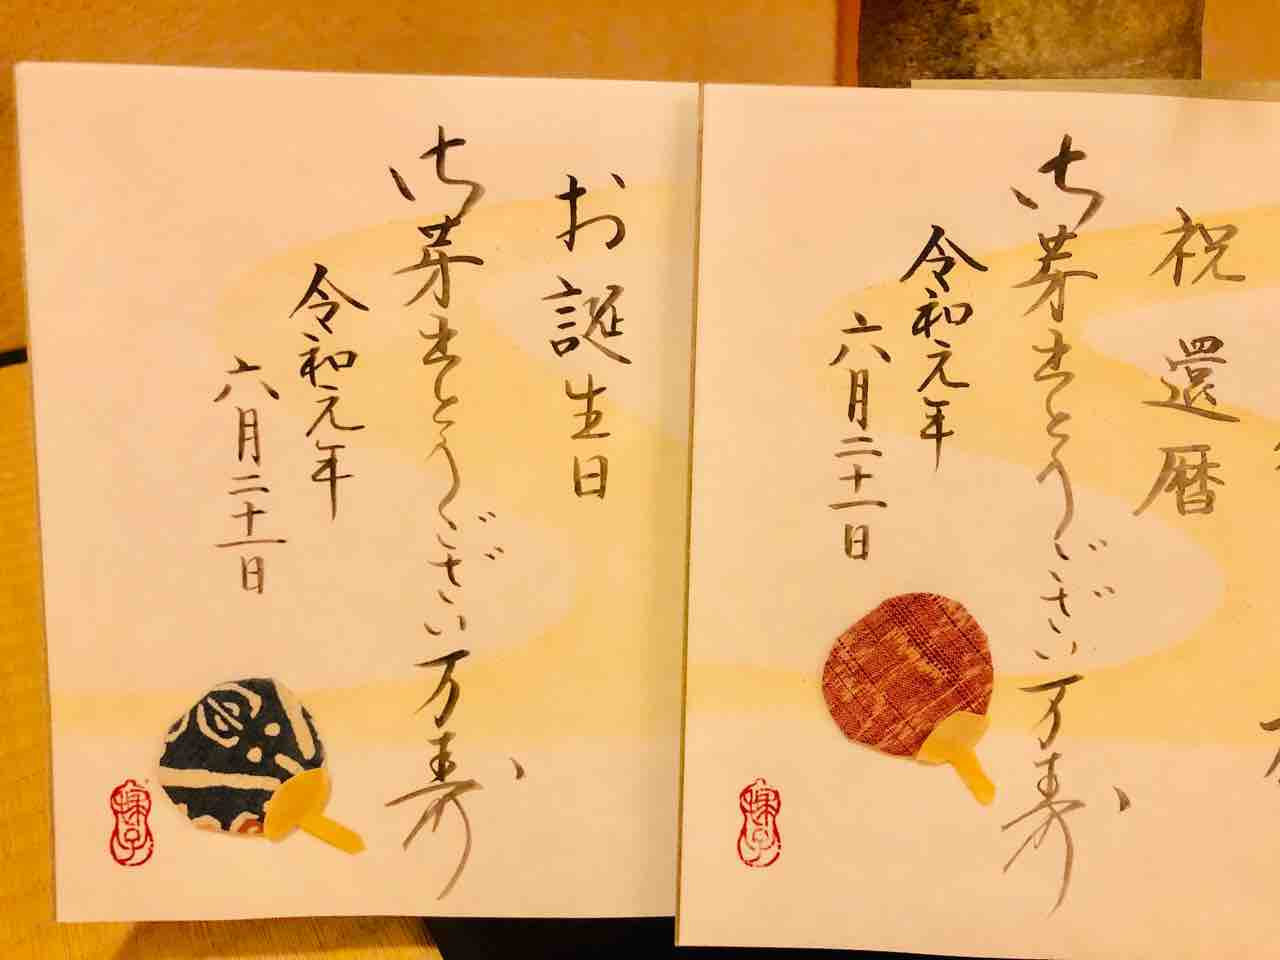 お誕生日
御芽出とうござい万寿
令和元年
六月二十一日
祝還暦
御芽出とうござい万寿
令和元年
六月二十一日